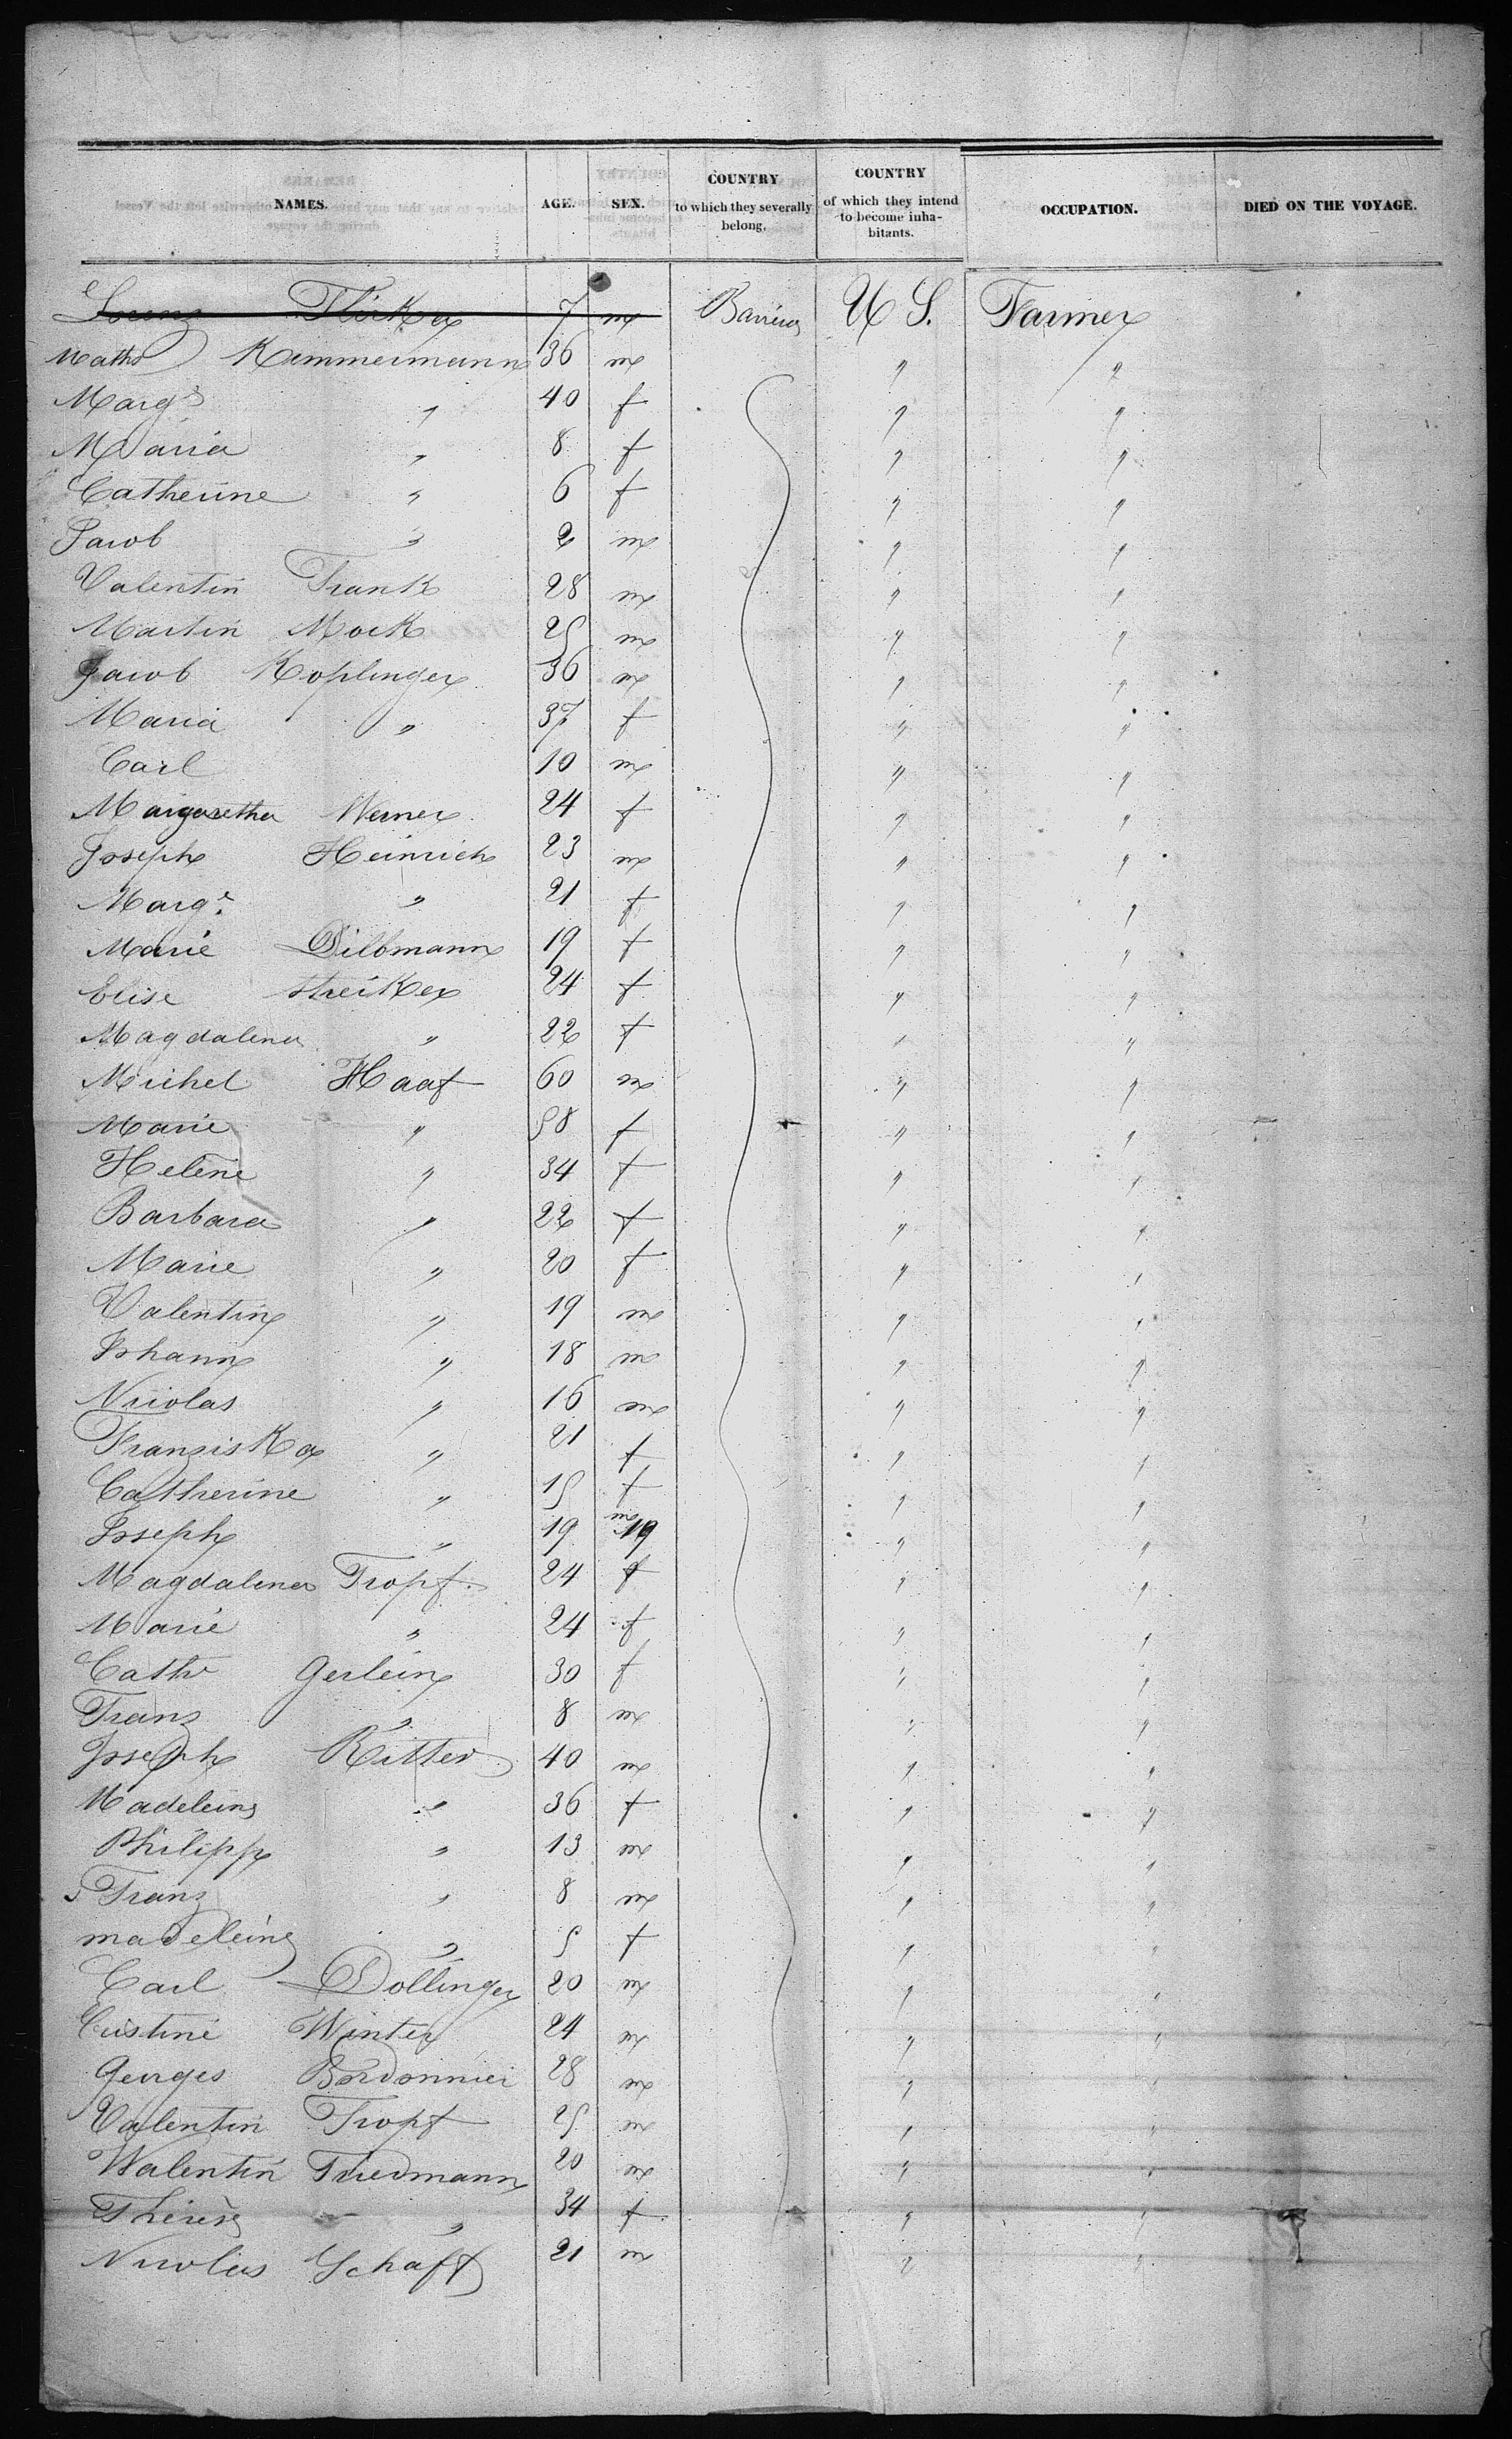 NAMES. AGE. SEX. COUNTRY to which they severally belong. COUNTRY of which they intend to become inhabitants. OCCUPATION. DIED ON THE VOYAGE.
Lorenz 7 m U S. Farmer
Maths Kammermann 36 m " "
Marg " 40 f " "
Maria " 8 f " "
Catherine " 6 f " "
Jacob " 2 m " "
Valentin Frank 28 m " "
Martin Mock 25 m " "
Jacob Koplinger 36 m " "
Maria " 37 f " "
Carl 10 m " "
Margaretha Werner 24 f " "
Joseph Heinrich 23 m " "
Marge " 21 f " "
Marie Dilbmann 19 f " "
Elise Streiker 24 f " "
Magdalena " 22 f " "
Michel Haaf 60 m " "
Marie " 58 f " "
Helene " 34 f " "
Barbara " 22 f " "
Marie " 20 f " "
Valentin " 19 m " "
Johann " 18 m " "
Nicolas " 16 m " "
Franziska " 21 f " "
Catherine " 15 f " "
Joseph " 19 m 19 " "
Magdalena Tropf 24 f " "
Marie " 24 f " "
Cathe Gerlein 30 f " "
Franz " 8 m " "
Joseph Ritter 40 m " "
Madeleine " 36 f " "
Philipp " 13 m " "
Franz " 8 m " "
madeleine " 5 f " "
Carl Dollinger 20 m " "
Custine Winter 24 m " "
Georges Bordonnier 28 m " "
Valentin Tropf 25 m " "
Walentin Friedmann 20 m " "
Therese " 34 f " "
Nicolas Schaff 21 m " "